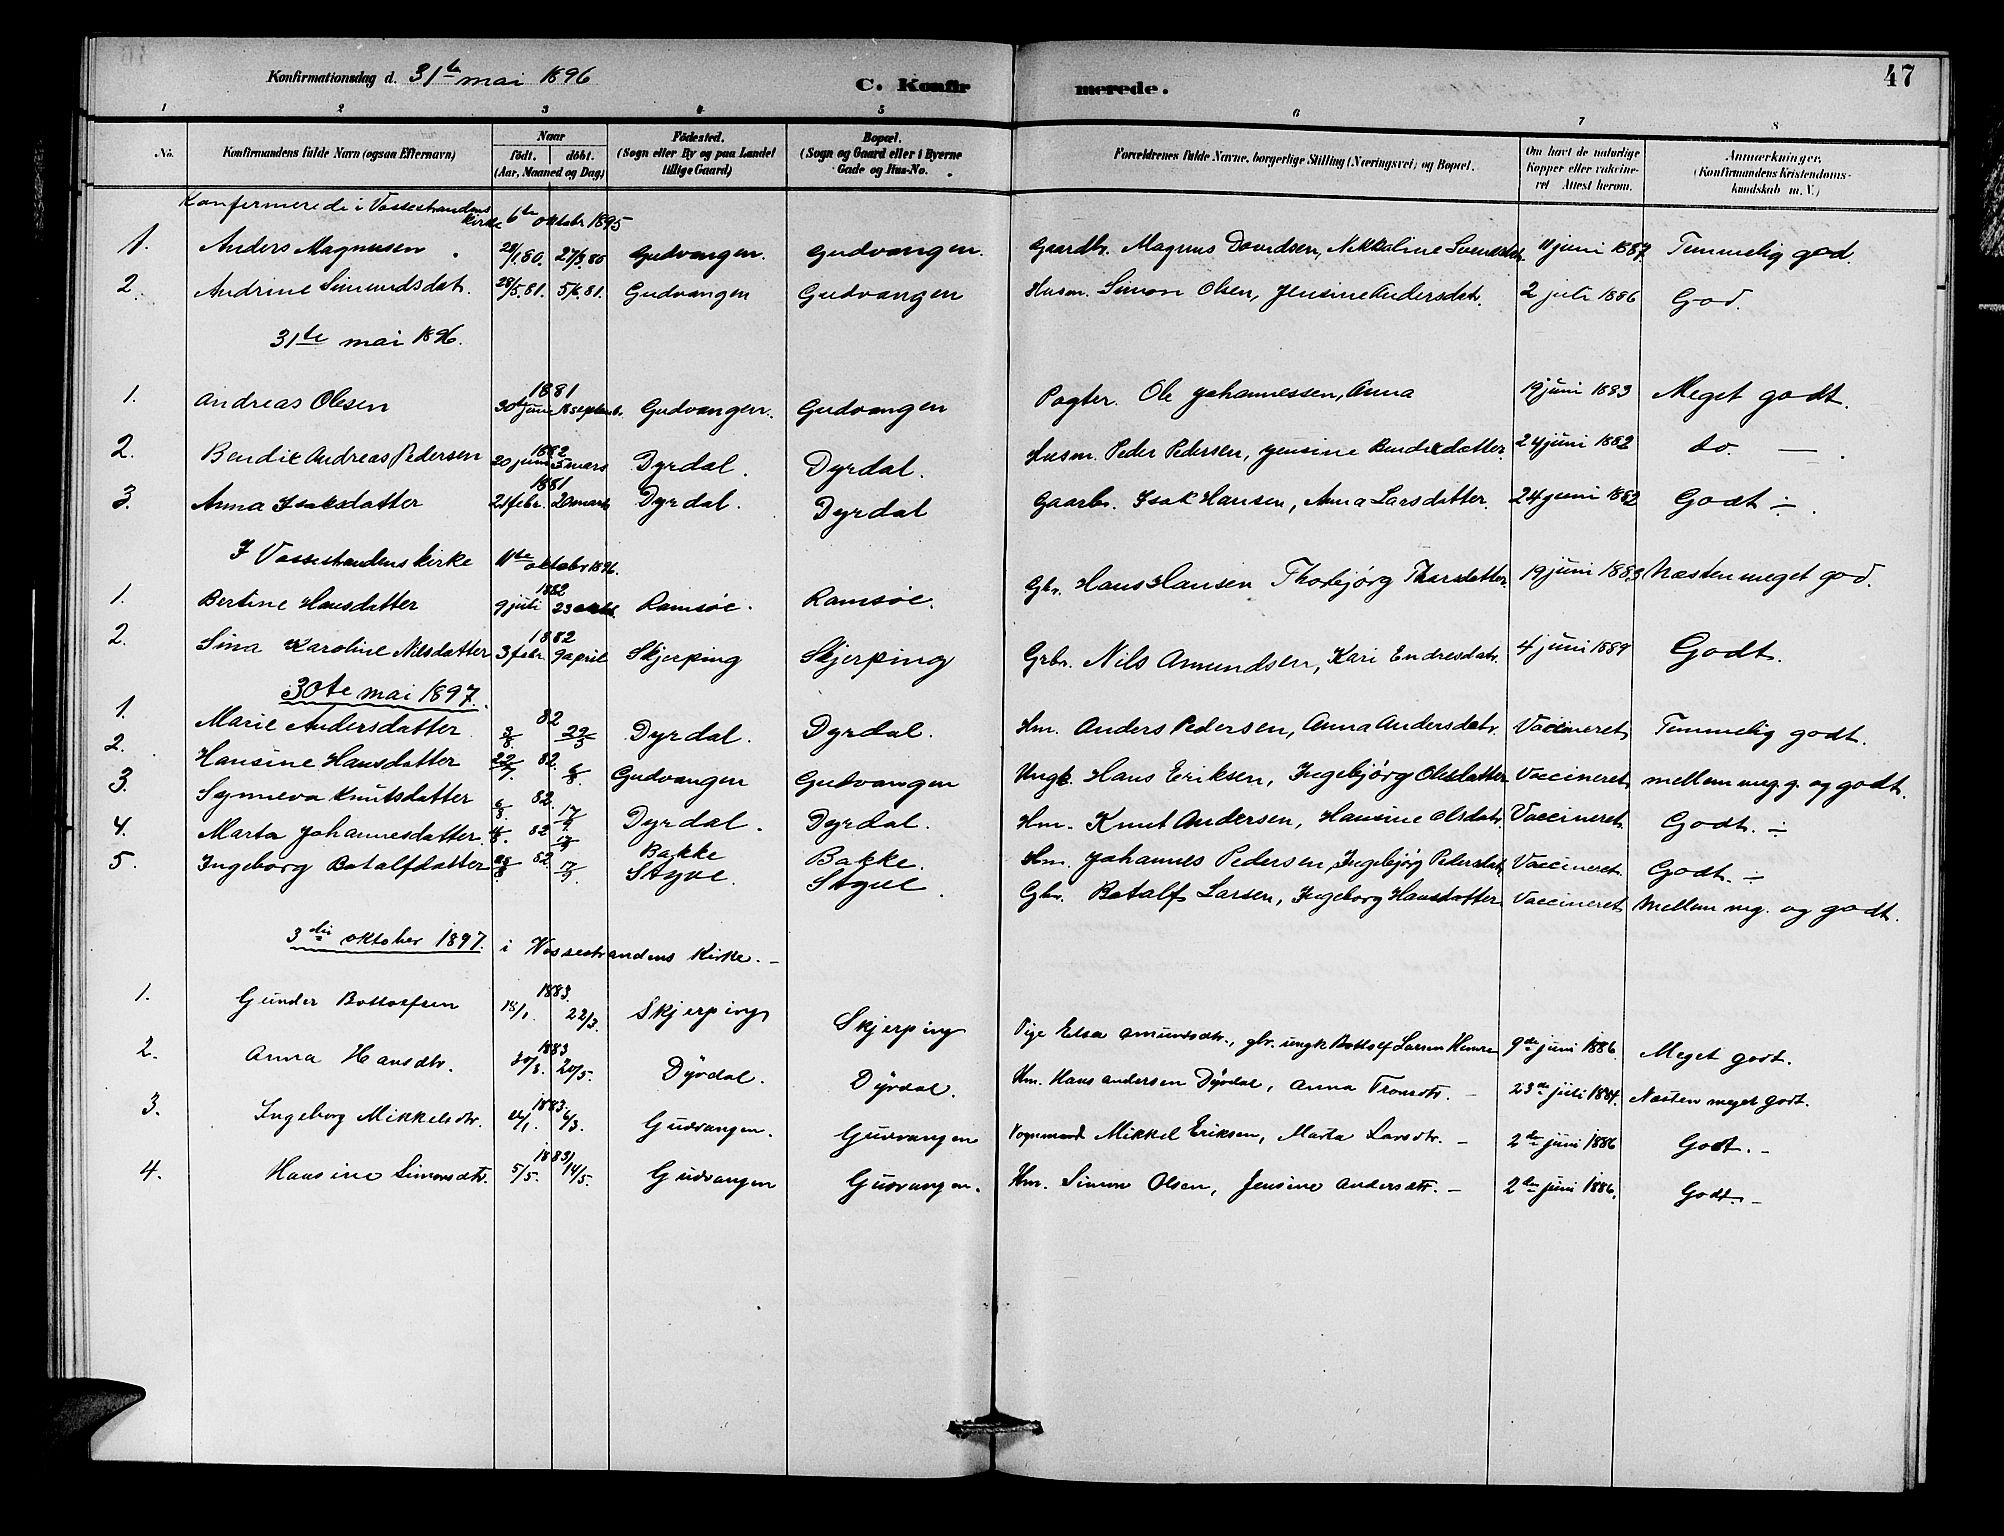 47
Konfirmationsdag d. 31te mai 1896
C. Konfirmerede.
1 2 3 4 5 6 7 8
No. Konfirmandens fulde Navn (ogsaa Efternavn) Naar födt. döbt. (Aar, Maaned og Dag) Födested. (Sogn eller By og paa Landet tillige Gaard) Bopæl. (Sogn og Gaard eller i Byerne Gade og Hus-No. Forældrenes fulde Navne, borgerlige Stilling (Næringsvei) og Bopæl. Om havt de naturlige Kopper eller vakcineret Attest herom. Anmærkninger. (Konfirmandens Kristendomskundskab m. V.)
Konfermerede i Vossestrandens kirke 6te oktobr 1895
1. Anders Magnusen. 28/1 80. 27/3 80 Gudvangen. Gudvangen. Gaardbr. Magnus Davidsen, Nikkaline Svendsdtr. 11 juni 1887 Temmelig god.
2. Andrine Simundsdat. 28/5 81. 5/6 81. Gudvangen Gudvangen Husm. Simon Olsen, Jensine Andersdat. 2 juli 1886 God.
31te mai 1896.
1. Andreas Olesen 1881 30te juni 18 septemb. Gudvangen. Gudvangen Pagter. Ole Johannessen, Anna 19 juni 1883 Meget godt.
2. Bendix Andreas Pedersen 1882 20 juni 5 mars Dyrdal. Dyrdal. Husm. Peder Pedersen, Jensine Bendixdatter. 24 juni 1882 do. —
3. Anna Isaksdatter 1881 21 febr. 20 marts Dyrdal. Dyrdal Gaarbr. Isak Hansen, Anna Larsdatter. 24 juni 1882 Godt ÷.
I Vossestrandens kirke 11te oktobr 1896.
1. Bertine Hansdatter 1882 9 juli 23 Ramsöe. Ramsöe. Gbr. Hans Hansen Thorbjörg Tharsdatter. 19 juni 1883 Næsten meget god.
2. Sina Karoline Nilsdatter 1882 3 febr. 9 april Skjerping Skjerping Grbr. Nils Amundsen, Kari Endresdatr. 4 juni 1889 Godt.
30te mai 1897.
1. Marie Andersdatter 82 3/8 22/5 Dyrdal. Dyrdal. Hm. Anders Pedersen, Anna Andersdatr. Vaccineret Temmelig godt.
2. Hansine Hansdatter 22/7 82. 6/8 Gudvangen Gudvangen Ungk. Hans Eriksen, Ingebjörg Olesdatter Vaccineret mellem meg. g. og godt.
3. Synneva Knutsdatter 6/8. 82. 17/9 Dyrdal. Dyrdal. Hm. Knut Andersen, Hansine Olsdatr. Vaccineret Godt. ÷
4. Marta Johannesdatter. 82 17/9 Bakke Bakke. Hm. Johannes Pedersen, Ingebjörg Pedersdatr. Vaccineret Godt. ÷
5. Ingeborg Botalfdatter 82. 17/9. Styve. Styve. Gbr. Botalf Larsen, Ingeborg Hansdatter Vaccineret Mellem mg. og godt.
3die oktober 1897. i Vossestrandens Kirke. —
1. Gunder Bottolfsen 1883. 18/1. 22/3. Skjerping Skjerping Pige Elsa Amundsdtr., gbr. ungk Bottolf Larsen Hemre 9de juni 1886. Meget godt.
2. Anna Hansdtr. 1883 30/3. 20/5. Dÿrdal. Dÿrdal. Hm. Hans Andersen Dÿrdal, Anna Tronsdtr. — 23de juli 1884. Næsten meget godt.
3. Ingeborg Mikkelsdtr. 1883. 6/3. Gudvangen. Gudvangen Vognmand Mikkel Eriksen, Marta Larsdtr. — 2de juni 1886 Godt. —
4. Hansine Simonsdtr. 1883 5/5. 14/5. Gudvangen Gudvangen. Hm. Simon Olsen, Jensine Andersdtr. — 2den juni 1886. Godt. —